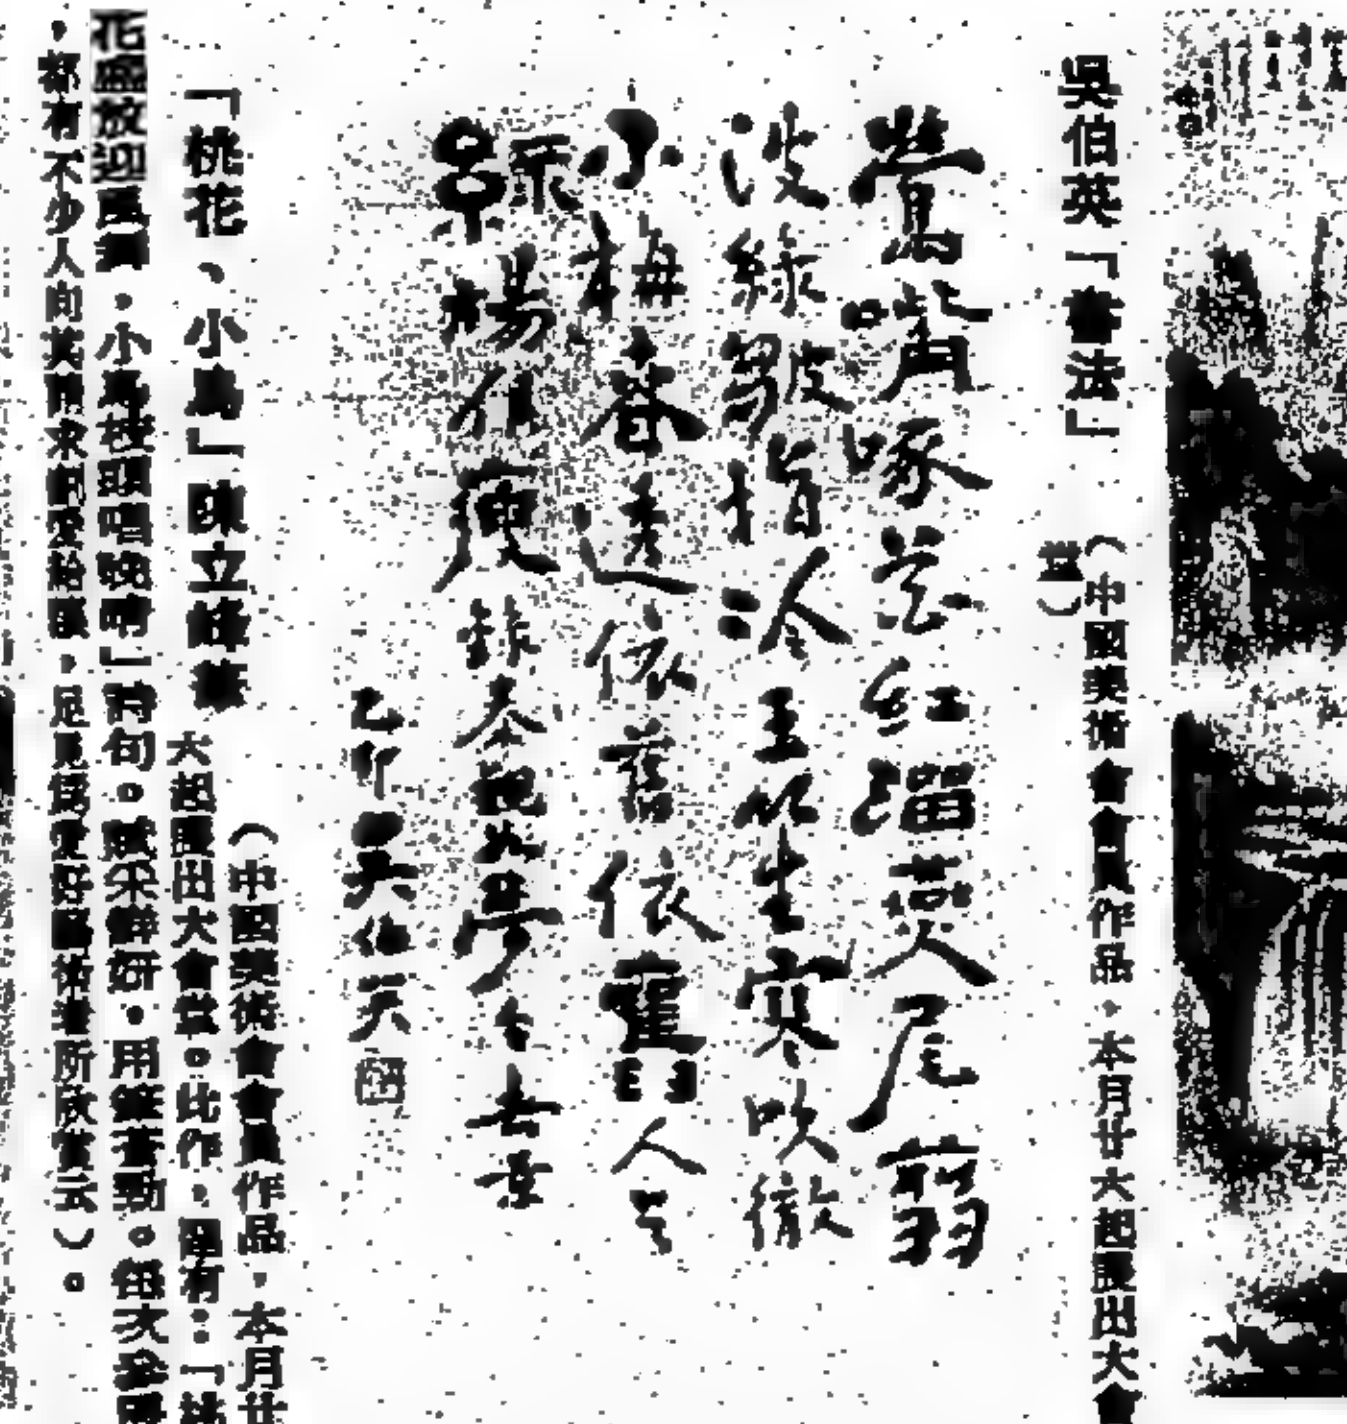 吳伯英「書法」
(中國美術會會員作品,本月廿六起展出大會
堂)
鶯嘴啄花紅溜燕尾翦
波綠皺指冷玉笙寒吹徹
小梅春透依舊依舊人与
綠楊俱瘦錄秦觀如夢令
乙卯吳伯
「桃花、小鳥」陳立峰
(中國美術會會員作品,本月廿
六起展出大會堂。此作,題有:「桃
花盛放迎風舞,小鳥枝頭唱晚晴」詩句。賦采鮮妍,用筆蒼勁。每次參展
,都有不少人向其,足見好藝術者所欣賞云)。